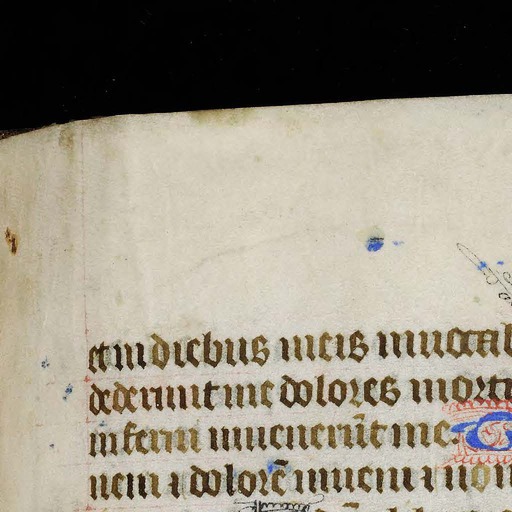 et in diebus meis inuocab
dederunt me dolores morti
inferni inuenerūt me. T
nem ⁊ dolorē inueni ⁊ nom